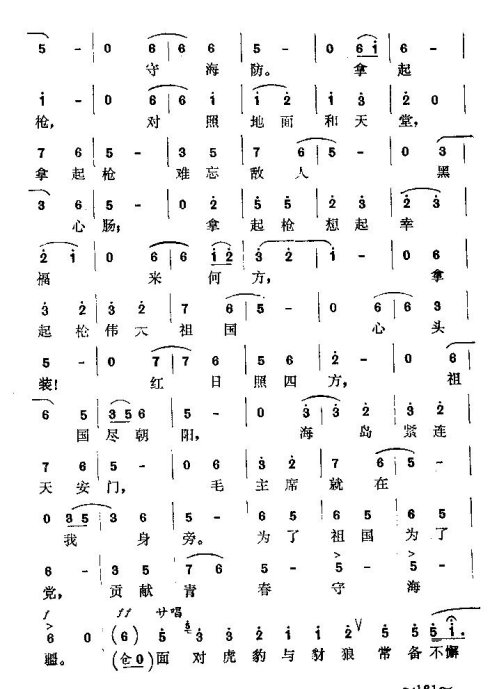 5 - | 0 6 | 6 6 | 5 - | 0 6 i | 6 -
守海防。 拿起
i - | 0 6 | 6 i | i 2 | i 3 | 2 0
枪, 对照地面和天堂,
7 6 | 5 - | 3 5 | 7 6 | 5 - | 0 3
拿起枪难忘敌人 黑
3 6 | 5 - | 0 2 | 5 5 | 2 2 | 2 3
心肠; 拿起枪想起幸
2 i | 0 6 | 6 i 2 | 3 2 | i - | 0 6
福 来何方, 拿
3 2 | i 3 | 7 6 | 5 - | 0 6 | 6 3
起枪伟大祖国 心头
5 - | 0 7 | 7 6 | 5 6 | 2 - | 0 6
装! 红日照四方, 祖
6 5 | 3 5 6 | 5 - | 0 3 | 3 2 | 3 2
国尽朝阳, 海岛紧连
7 6 | 5 - | 0 6 | 3 2 | 7 6 | 5 -
天安门, 毛主席就在
0 3 5 | 3 6 | 5 - | 6 5 | 6 5 | 6 5
我身旁。 为了祖国为了
6 - | 3 5 | 7 6 | 5 - | 5 - | 5 -
党, 贡献青春守海
f ff サ唱
6 0 (6) 5 3 3 2 2 2 3 2 5 5 i.
疆。 (仓0) 面对虎豹与豺狼常备不懈
～181～